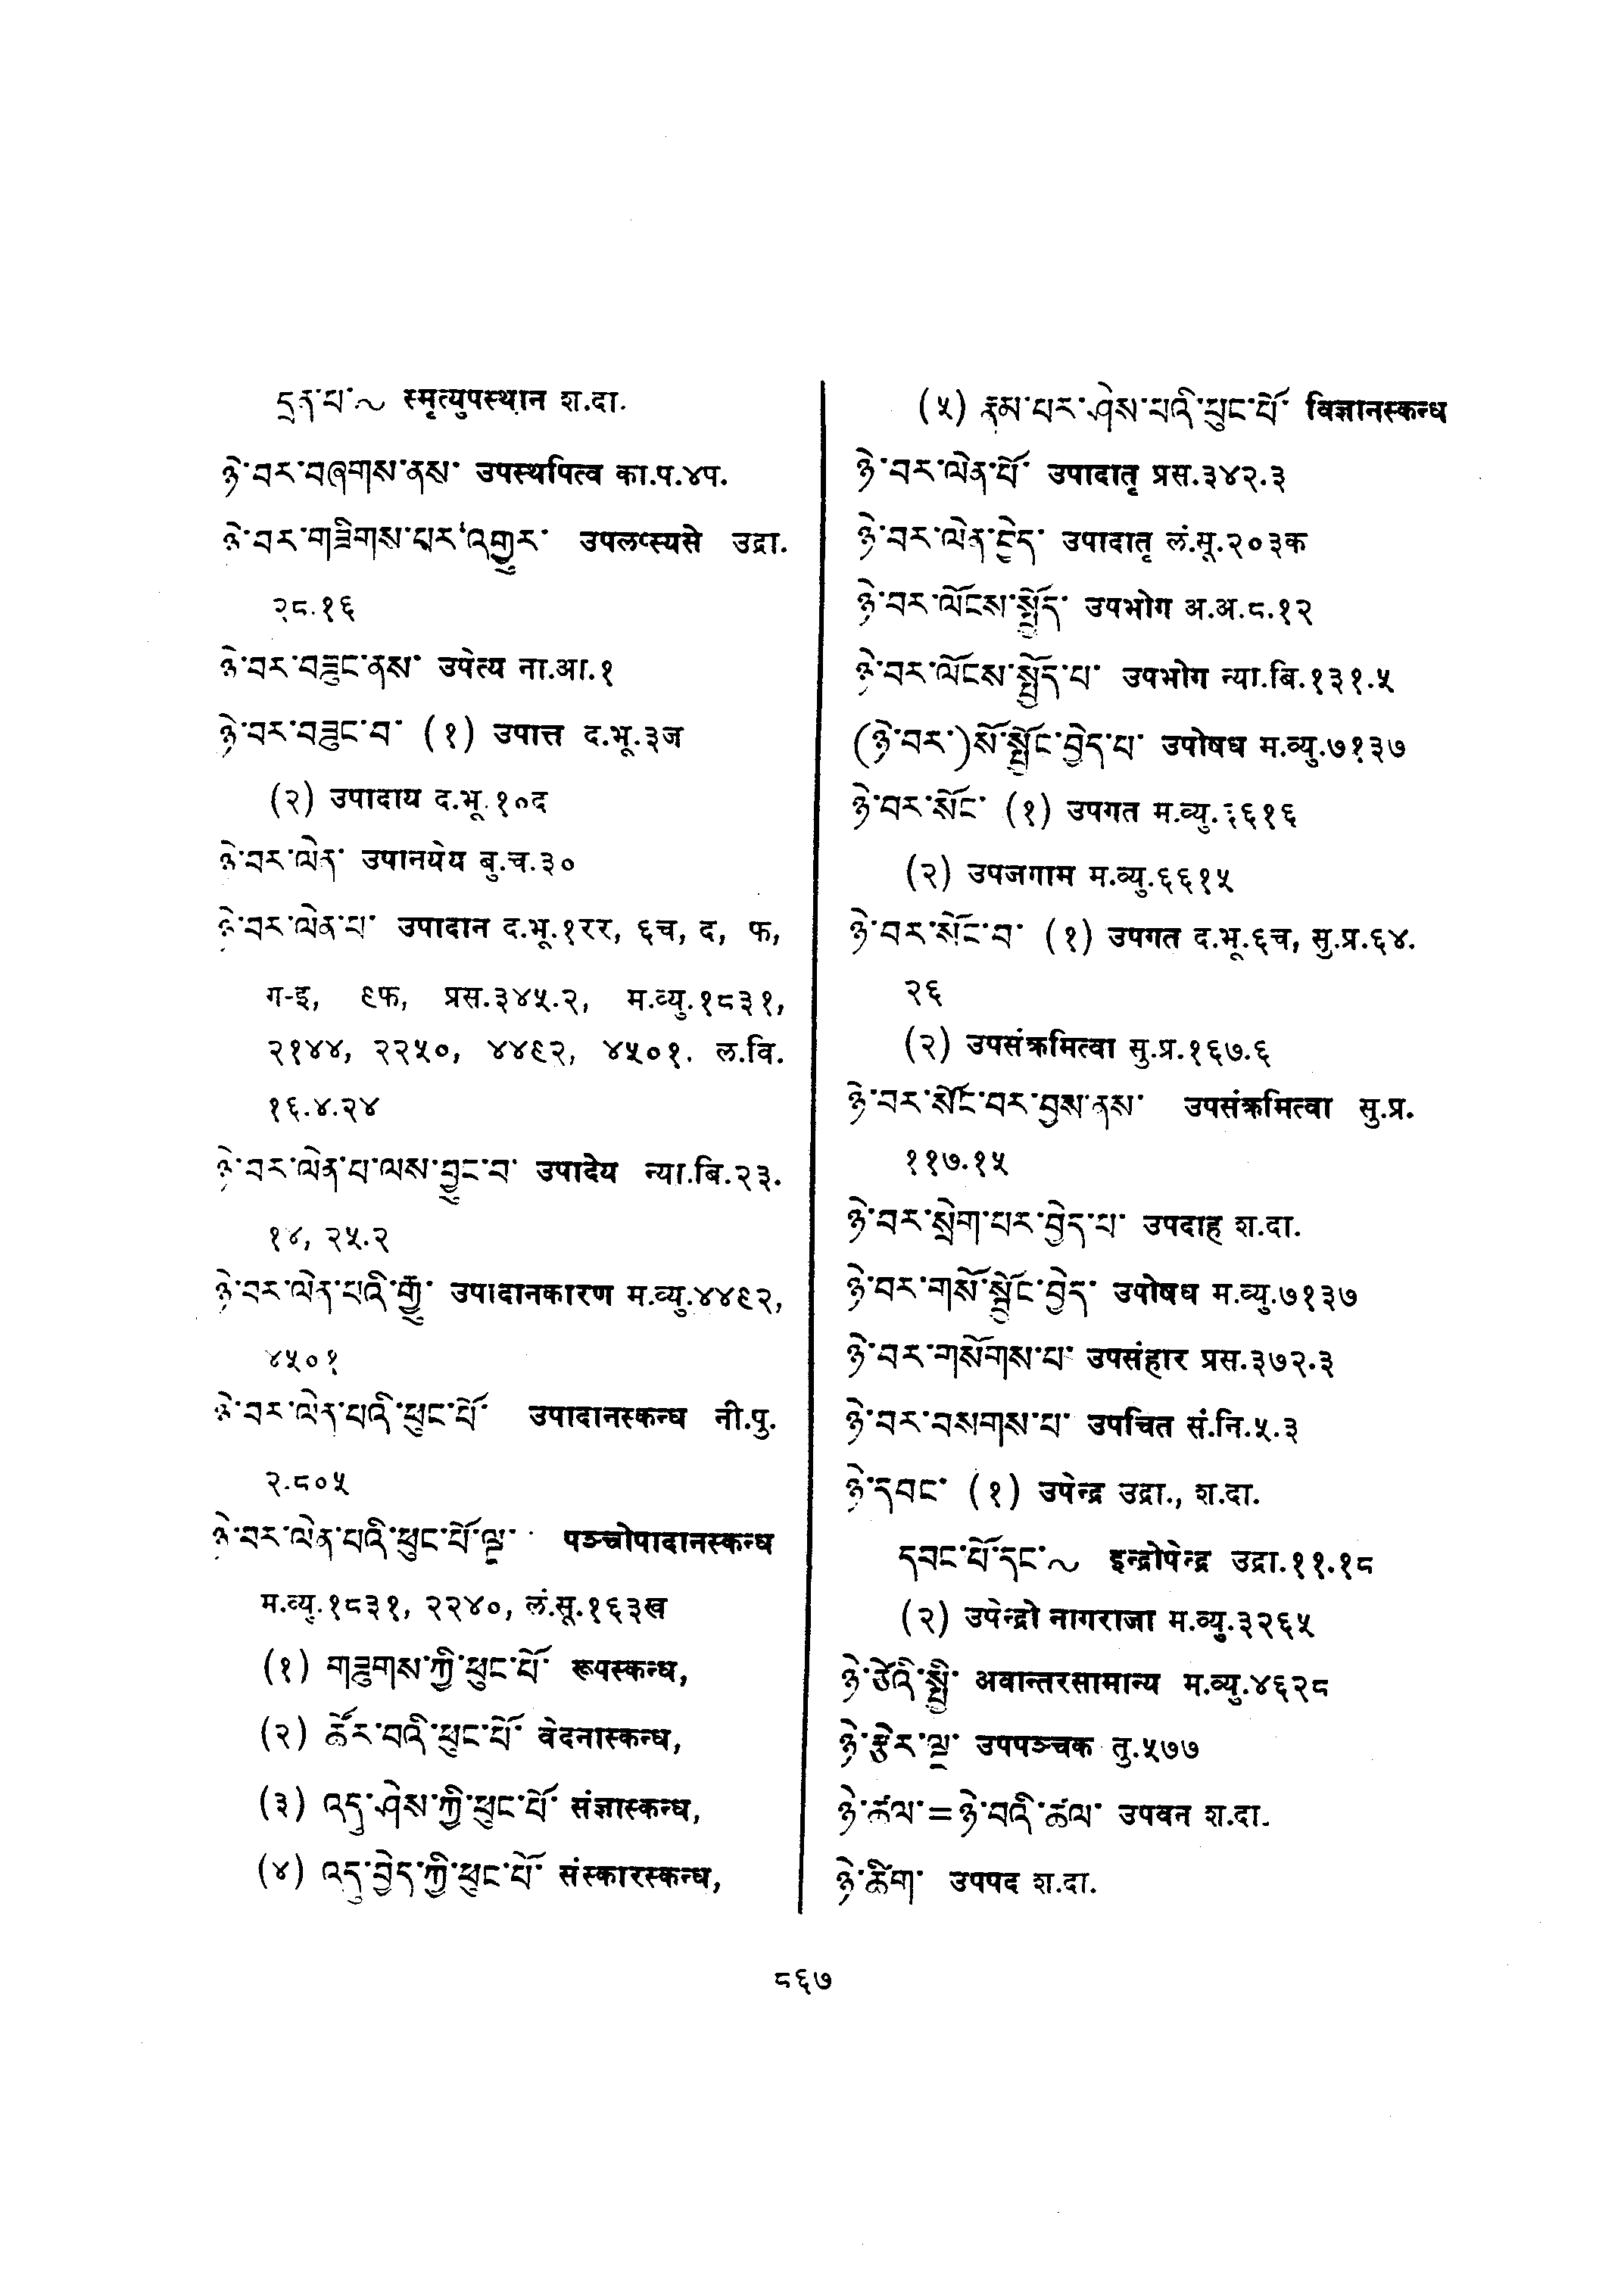 དྲན་པ་～ स्मृत्युपस्थान श.दा.
ཉེ་བར་བཞགས་ནས་ उपस्थपित्व का.प.४प.
ཉེ་བར་གཟིགས་པར་འགྱུར་ उपलप्स्यसे उद्रा.
२८.१६
ཉེ་བར་བཟུང་ནས་ उपेत्य ना.आ.१
ཉེ་བར་བཟུང་བ་ (१) उपात्त द.भू.३ज
(२) उपादाय द.भू.१०द
ཉེ་བར་ལེན་ उपानयेय बु.च.३०
ཉེ་བར་ལེན་པ་ उपादान द.भू.१रर, ६च, द, फ,
ग-इ, ९फ, प्रस.३४५.२, म.व्यु.१८३१,
२१४४, २२५०, ४४९२, ४५०१. ल.वि.
१६.४.२४
ཉེ་བར་ལེན་པ་ལས་བྱུང་བ་ उपादेय न्या.बि.२३.
१४, २५.२
ཉེ་བར་ལེན་པའི་རྒྱུ་ उपादानकारण म.व्यु.४४९२,
४५०१
ཉེ་བར་ལེན་པའི་ཕུང་པོ་ उपादानस्कन्ध नी.पु.
२.८०५
ཉེ་བར་ལེན་པའི་ཕུང་པོ་ལྔ་ पञ्चोपादानस्कन्ध
म.व्यु.१८३१, २२४०, लं.सू.१६३ख
(१) གཟུགས་ཀྱི་ཕུང་པོ་ रूपस्कन्ध,
(२) ཚོར་བའི་ཕུང་པོ་ वेदनास्कन्ध,
(३) འདུ་ཤེས་ཀྱི་ཕུང་པོ་ संज्ञास्कन्ध,
(४) འདུ་བྱེད་ཀྱི་ཕུང་པོ་ संस्कारस्कन्ध,
(५) རྣམ་པར་ཤེས་པའི་ཕུང་པོ་ विज्ञानस्कन्ध
ཉེ་བར་ལེན་པོ་ उपादातृ प्रस.३४२.३
ཉེ་བར་ལེན་བྱེད་ उपादातृ लं.सू.२०३क
ཉེ་བར་ལོངས་སྤྱོད་ उपभोग अ.अ.८.१२
ཉེ་བར་ལོངས་སྤྱོད་པ་ उपभोग न्या.बि.१३१.५
(ཉེ་བར་)སོ་སྦྱོང་བྱེད་པ་ उपोषध म.व्यु.७१३७
ཉེ་བར་སོང་ (१) उपगत म.व्यु.६६१६
(२) उपजगाम म.व्यु.६६१५
ཉེ་བར་སོང་བ་ (१) उपगत द.भू.६च, सु.प्र.६४.
२६
(२) उपसंक्रमित्वा सु.प्र.१६७.६
ཉེ་བར་སོང་བར་བྱས་ནས་ उपसंक्रमित्वा सु.प्र.
११७.१५
ཉེ་བར་སྲེག་པར་བྱེད་པ་ उपदाह श.दा.
ཉེ་བར་གསོ་སྦྱོང་བྱེད་ उपोषध म.व्यु.७१३७
ཉེ་བར་གསོགས་པ་ उपसंहार प्रस.३७२.३
ཉེ་བར་བསགས་པ་ उपचित सं.नि.५.३
ཉེ་དབང་ (१) उपेन्द्र उद्रा., श.दा.
དབང་པོ་དང་～ इन्द्रोपेन्द्र उद्रा.११.१८
(२) उपेन्द्रो नागराजा म.व्यु.३२६५
ཉེ་ཙེའི་སྤྱི་ अवान्तरसामान्य म.व्यु.४६२८
ཉེ་རྩེར་ལྔ་ उपपञ्चक तु.५७७
ཉེ་ཚལ་=ཉེ་བའི་ཚལ་ उपवन श.दा.
ཉེ་ཚིག་ उपपद श.दा.
८६७